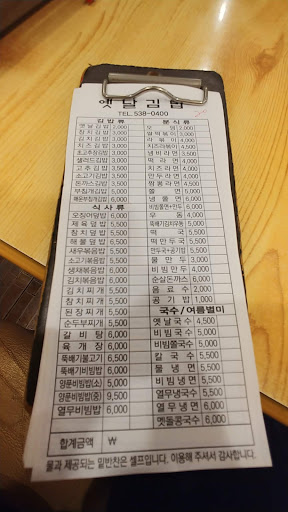 옛날김밥
TEL. 538-0400
김밥류
옛날김밥 2,000
참치김밥 3,000
김치김밥 3,000
치즈김밥 3,000
초고추장김밥 3,000
샐러드김밥 3,000
고추김밥 3,000
소고기김밥 3,500
돈까스김밥 3,500
부침개김밥 6,000
매운부침개김밥 6,000
식사류
오징어덮밥 6,000
제육덮밥 5,500
참치덮밥 5,500
해물덮밥 5,500
새우볶음밥 5,500
소고기볶음밥 5,500
생채볶음밥 6,000
김치볶음밥 5,500
김치찌개 5,500
참치찌개 5,500
된장찌개 5,500
순두부찌개 5,500
갈비탕 6,000
육개장 6,000
뚝배기불고기 6,500
뚝배기비빔밥 5,500
양푼비빔밥(소) 5,000
양푼비빔밥(중) 9,500
열무비빔밥 6,000
분식류
오뎅 2,000
떡볶이 3,000
라볶이 4,000
치즈라볶이 4,500
라면 3,000
떡라면 3,500
치즈라면 3,500
만두라면 3,500
짬뽕라면 4,500
쫄면 5,000
냉쫄면 6,000
비빔쫄면+만두 6,000
우동 4,000
떡국 5,000
떡만두국 5,500
만두국+공기밥 5,500
물만두 3,000
비빔만두 4,000
순살돈까스 6,000
음료수 2,000
공기밥 1,000
국수/여름별미
옛날국수 4,500
비빔국수 5,000
비빔쫄국수 5,500
칼국수 5,500
물냉면 5,500
비빔냉면 5,500
열무냉국수 5,500
열무냉면 6,000
옛돌콩국수 6,000
합계금액 ₩
물과 제공되는 밑반찬은 셀프입니다. 이용해 주셔서 감사합니다.